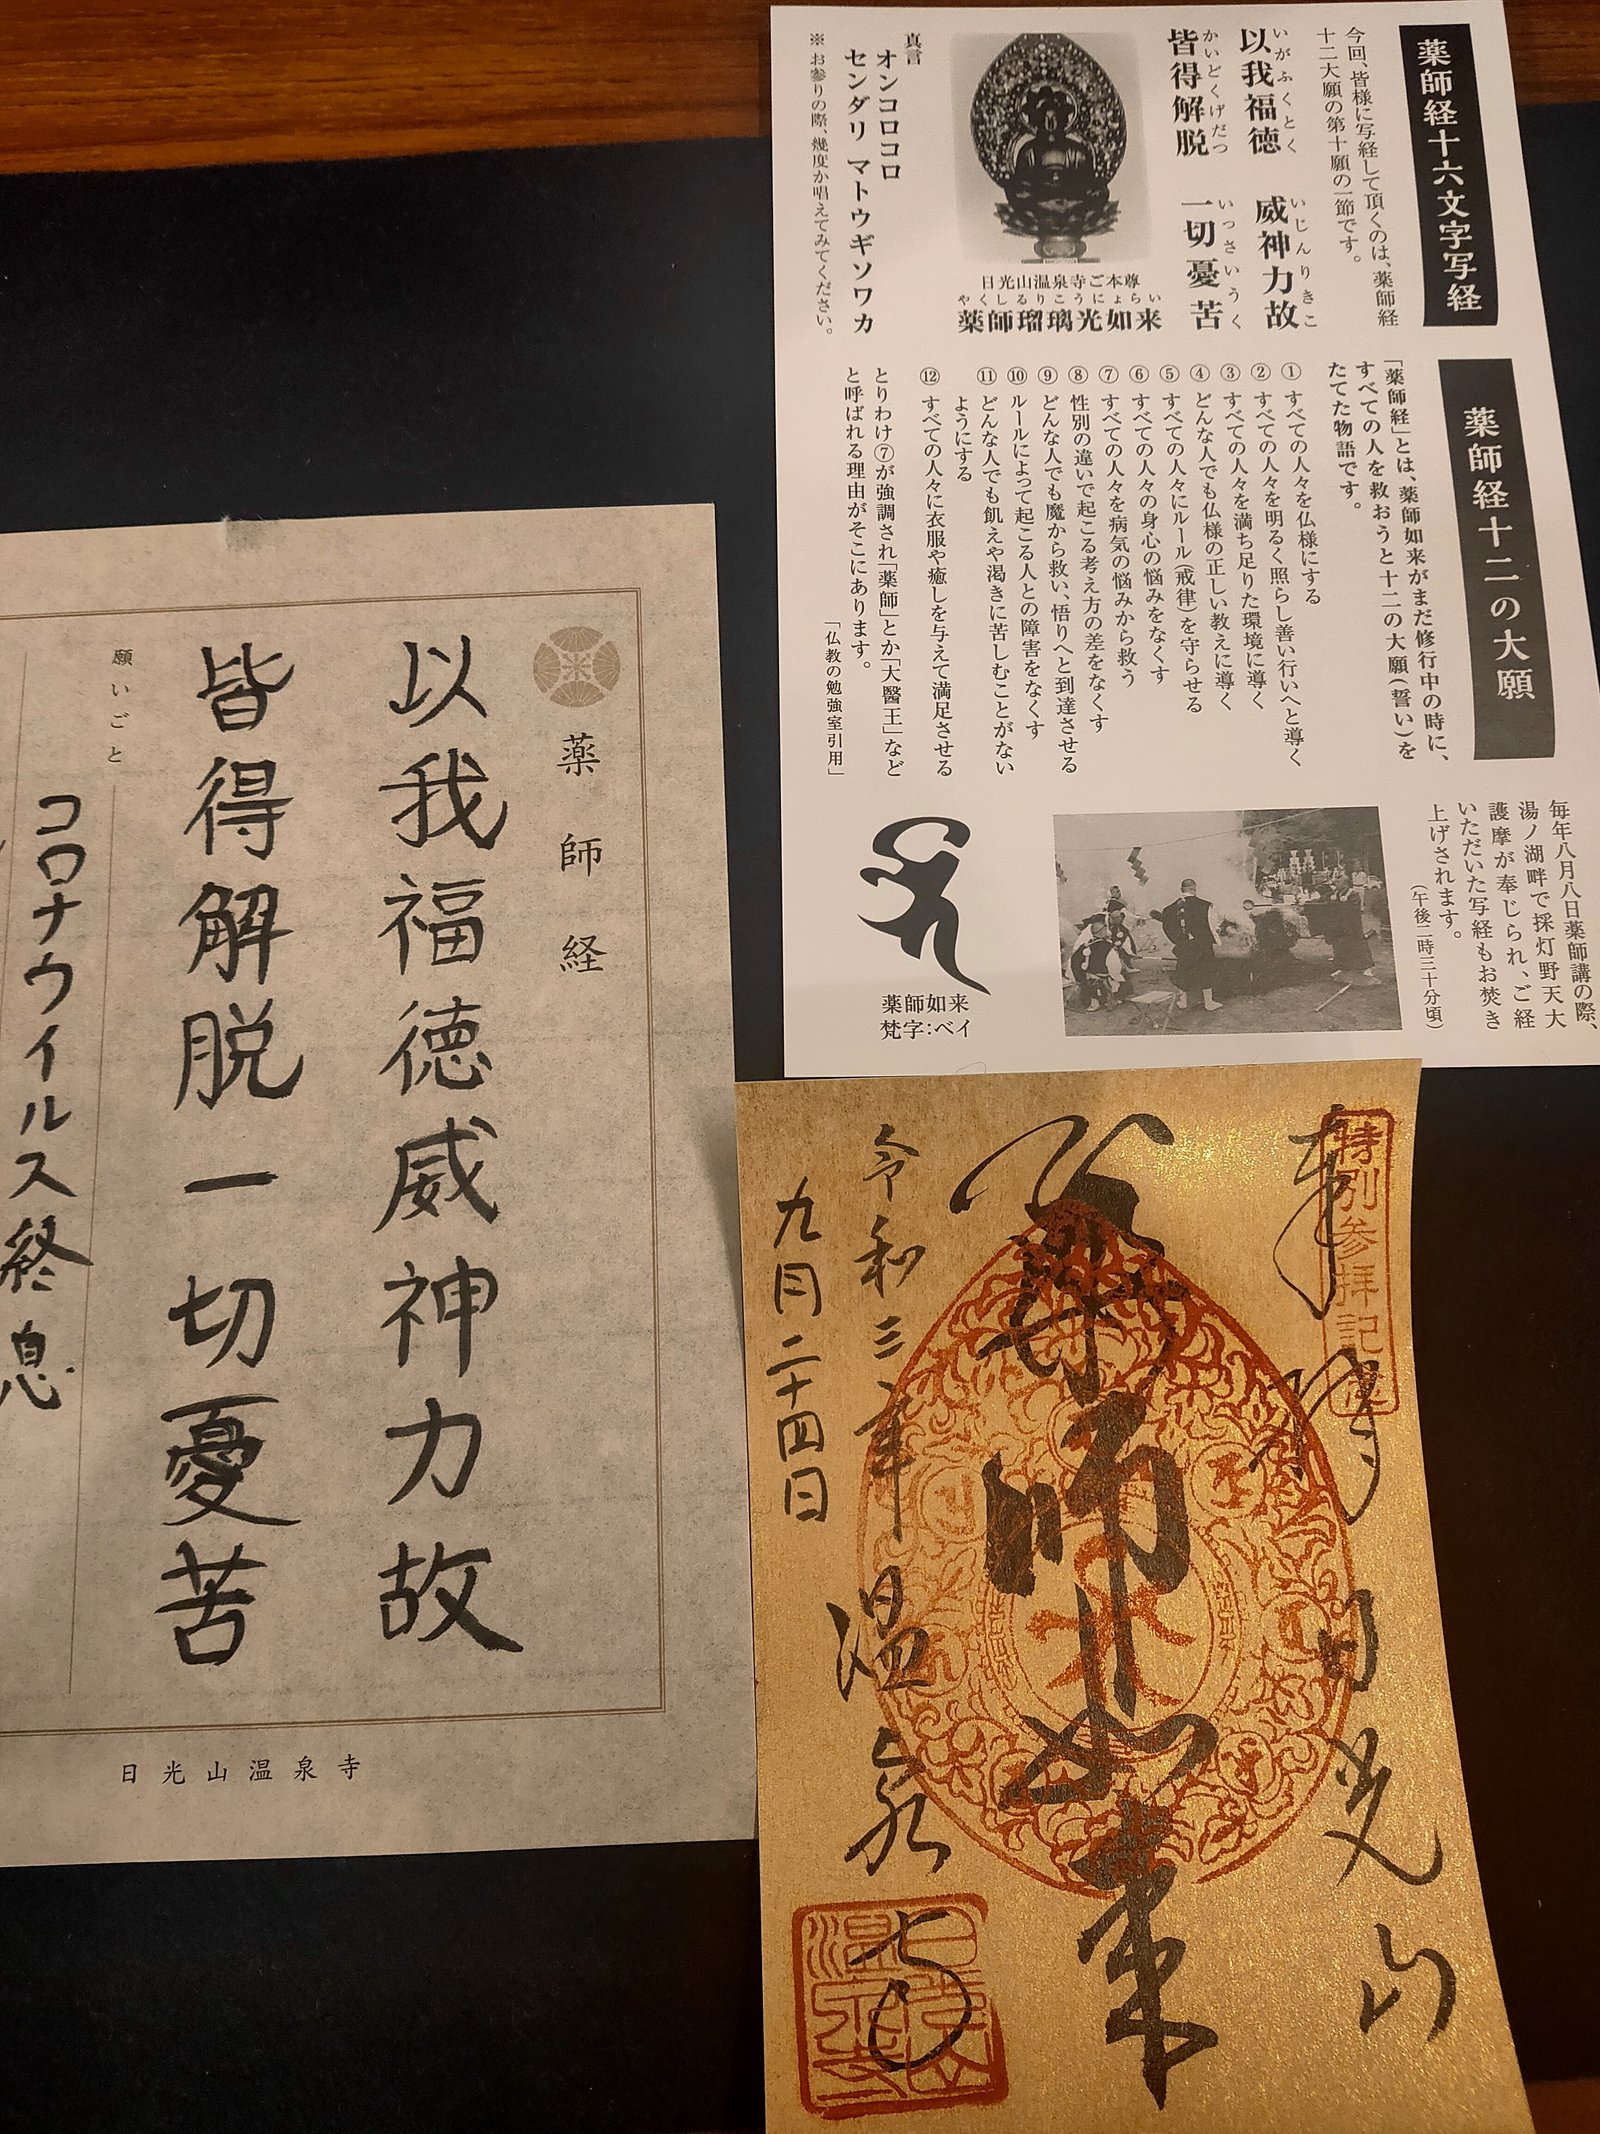 薬師経十六文字写経
今回、皆様に写経して頂くのは、薬師経
十二大願の第十願の一節です。
いがふくとく いじんりきこ
以我福徳 威神力故
かいどくげだつ いっさいうく
皆得解脱 一切憂苦
日光山温泉寺ご本尊
やくしるりこうにょらい
薬師瑠璃光如来
真言
オンコロコロ
センダリ マトウギソワカ
※お参りの際、幾度か唱えてみてください。
薬師経十二の大願
「薬師経」とは、薬師如来がまだ修行中の時に、
すべての人を救おうと十二の大願(誓い)を
たてた物語です。
① すべての人々を仏様にする
② すべての人々を明るく照らし善い行いへと導く
③ すべての人々を満ち足りた環境に導く
④ どんな人でも仏様の正しい教えに導く
⑤ すべての人々にルール(戒律)を守らせる
⑥ すべての人々の身心の悩みをなくす
⑦ すべての人々を病気の悩みから救う
⑧ 性別の違いで起こる考え方の差をなくす
⑨ どんな人でも魔から救い、悟りへと到達させる
⑩ ルールによって起こる人との障害をなくす
⑪ どんな人でも飢えや渇きに苦しむことがない
ようにする
⑫ すべての人々に衣服や癒しを与えて満足させる
とりわけ⑦が強調され「薬師」とか「大醫王」など
と呼ばれる理由がそこにあります。
「仏教の勉強室引用」
毎年八月八日薬師講の際、
湯ノ湖畔で採灯野天大
護摩が奉じられ、ご経
いただいた写経もお焚き
上げされます。
(午後二時三十分頃)
薬師如来
梵字:ベイ
薬師経
以我福徳威神力故
皆得解脱一切憂苦
願いごと
コロナウイルス終息
日光山温泉寺
特別参拝記念
奉拝 日光山
薬師如来
令和三年 温泉寺
九月二十四日